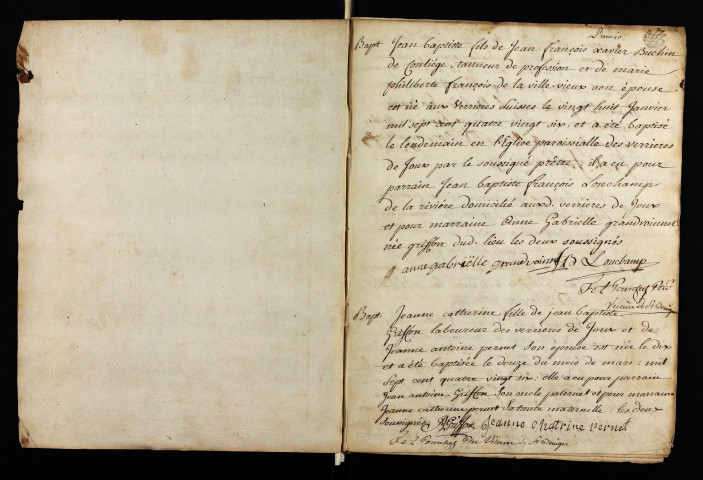 Premier
Bapt Jean baptiste fils de Jean françois xavier Buchin
de Conliége, tanneur de profession et de marie
philiberte françois de la ville-vieux son épouse
est né aux Verrières Suisses le vingt huit Janvier
mil sept cent quatre vingt six, et a été baptisé
le lendemain en l'Eglise paroissialle des verrieres
de Joux par le soussigné prêtre; il a eu pour
parrain Jean baptiste françois Lonchamp
de la riviére domicilié auxd. verrières de Joux
et pour marraine Anne Gabrielle grandvoinnet
née griffon dud. lieu les deux soussignés
anne gabriëlle grandvoinnet JB Lonchamp
Bapt Jeanne catherine fille de jean baptiste
Griffon laboureur des verrieres de Joux et de
Jeanne antoine pernet son épouse est née le dix
et a été baptisée le douze du mois de mars: mil
sept cent quatre vingt six: elle a eu pour parrain
Jean antoine Griffon son oncle paternel et pour marraine
Jeanne catherine pernet sa tante maternelle les deux
soussignés Griffon Jeanne chatrine pernet